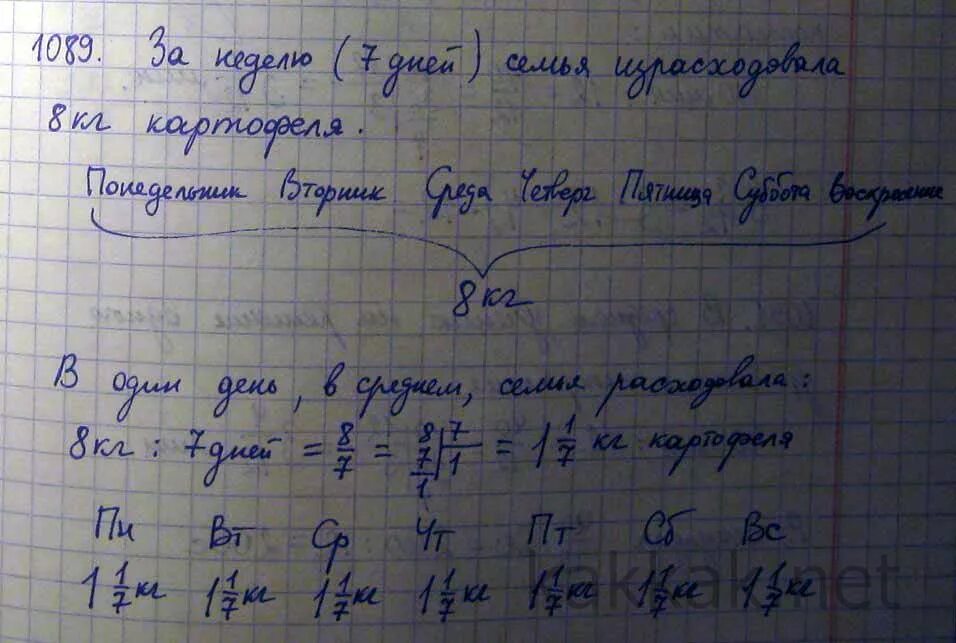 1089. За неделю (7 дней) семья израсходовала
8кг картофеля.
Понедельник Вторник Среда Четверг Пятница Суббота Воскресение
8кг
В один день, в среднем, семья расходовала:
8кг : 7дней = 8/7 = 8 | 7 = 1 1/7 кг картофеля
7 | 1
1
Пн Вт Ср Чт Пт Сб Вс
1 1/7 кг 1 1/7 кг 1 1/7 кг 1 1/7 кг 1 1/7 кг 1 1/7 кг 1 1/7 кг
kakkak.net